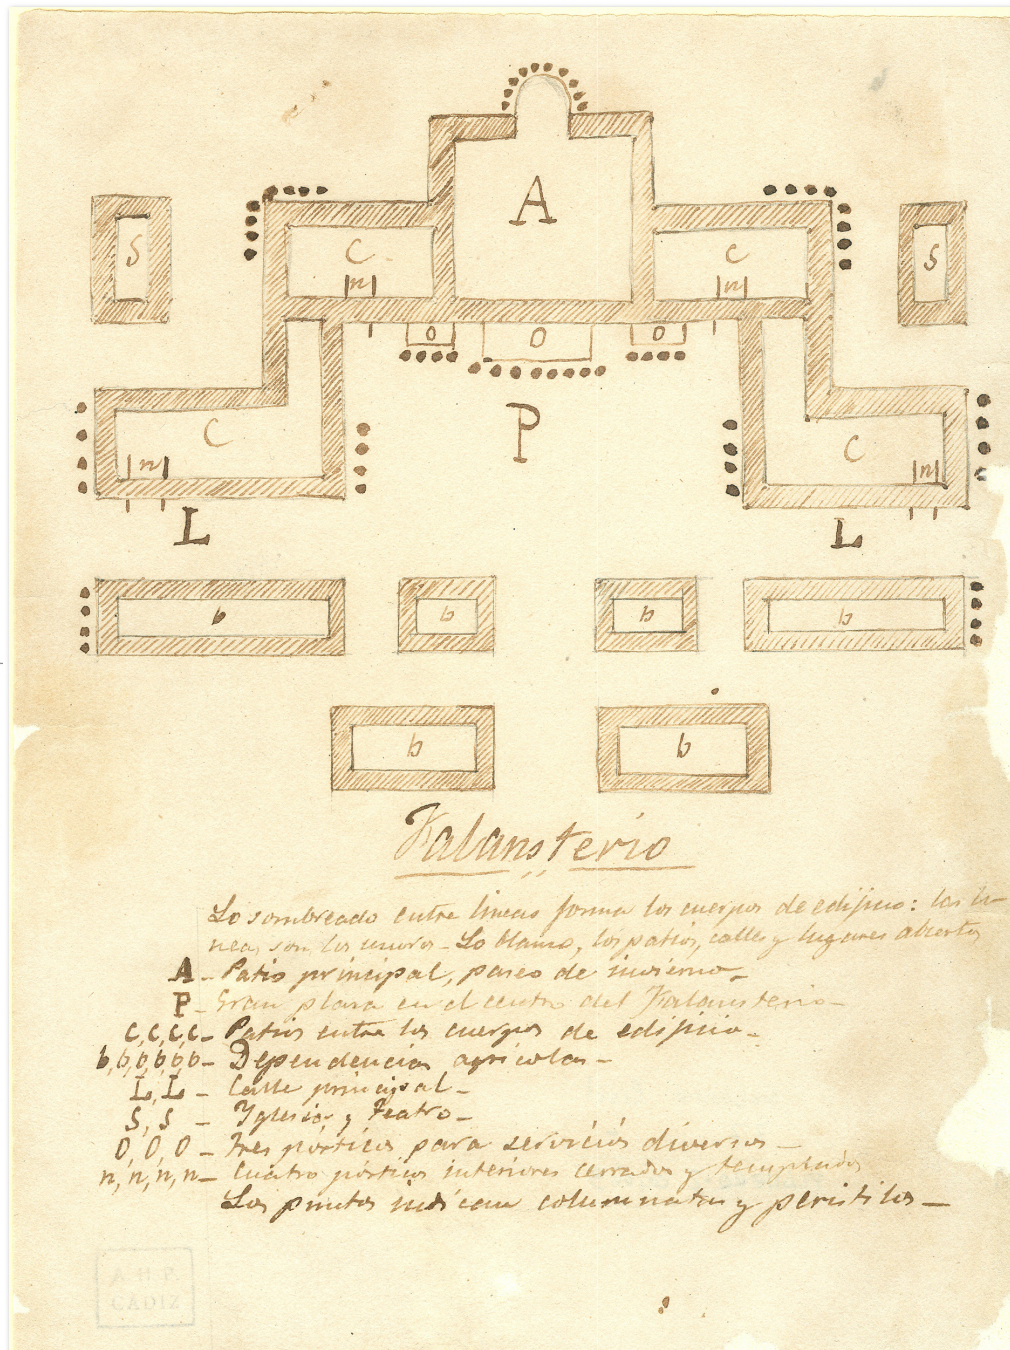 A
S
C
C
S
n
n
O
O
O
P
C
C
n
n
L
L
b
b
b
b
b
b
Falansterio
Lo sombreado entre lineas forma los cuerpos de edificio: las li-
neas son los muros - Lo blanco, los patios, calles y lugares abiertos
A - Patio principal, paseo de invierno -
P - Gran plaza en el centro del Falansterio -
C, C, C, C - Patios entre los cuerpos de edificio -
b, b, b, b, b, b - Dependencias agrícolas -
L, L - Calle principal -
S, S - Yglesia y teatro -
O, O, O - Tres pórticos para servicios diversos -
n, n, n, n - Cuatro pórticos interiores cerrados y templados
Los puntos indican columnatas y peristilos -
A H P
CADIZ